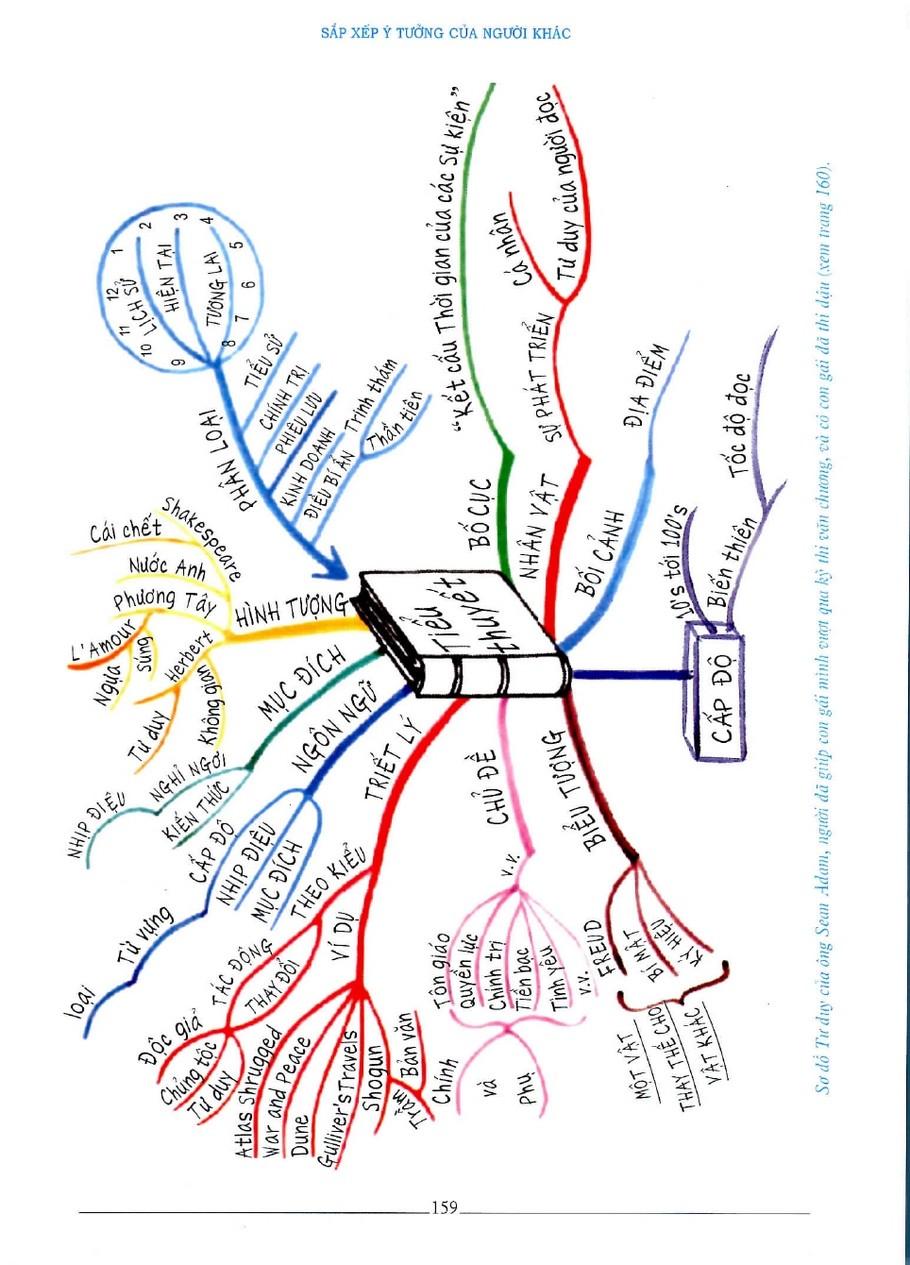 SẮP XẾP Ý TƯỞNG CỦA NGƯỜI KHÁC
Tiểu
thuyết
PHÂN LOẠI
LỊCH SỬ
HIỆN TẠI
TƯƠNG LAI
12
1
2
3
4
5
6
7
8
9
10
11
TIỂU SỬ
CHÍNH TRỊ
PHIÊU LƯU
KINH DOANH
ĐIỀU BÍ ẨN
Trinh thám
Thần tiên
BỐ CỤC
“Kết cấu Thời gian của các Sự kiện”
NHÂN VẬT
SỰ PHÁT TRIỂN
Cá nhân
Tư duy của người đọc
BỐI CẢNH
ĐỊA ĐIỂM
CẤP ĐỘ
10's tới 100's
Biến thiên
Tốc độ đọc
BIỂU TƯỢNG
FREUD
BÍ MẬT
KÝ HIỆU
MỘT VẬT
THAY THẾ CHO
VẬT KHÁC
CHỦ ĐỀ
v.v.
Tôn giáo
Quyền lực
Chính trị
Tiền bạc
Tình yêu
v.v.
Chính
và
Phụ
TRIẾT LÝ
THEO KIỂU
TÁC ĐỘNG
THAY ĐỔI
Độc giả
Chủng tộc
Tư duy
VÍ DỤ
Atlas Shrugged
War and Peace
Dune
Gulliver's Travels
Shogun
Trầm
Bản văn
NGÔN NGỮ
CẤP ĐỘ
NHỊP ĐIỆU
MỤC ĐÍCH
Từ vựng
loại
MỤC ĐÍCH
NGHỈ NGƠI
KIẾN THỨC
NHỊP ĐIỆU
HÌNH TƯỢNG
Shakespeare
Cái chết
Nước Anh
Phương Tây
L'Amour
Ngựa
súng
Herbert
Tư duy
Không gian
Sơ đồ Tư duy của ông Sean Adam, người đã giúp con gái mình vượt qua kỳ thi văn chương, và cô con gái đã thi đậu (xem trang 160).
159